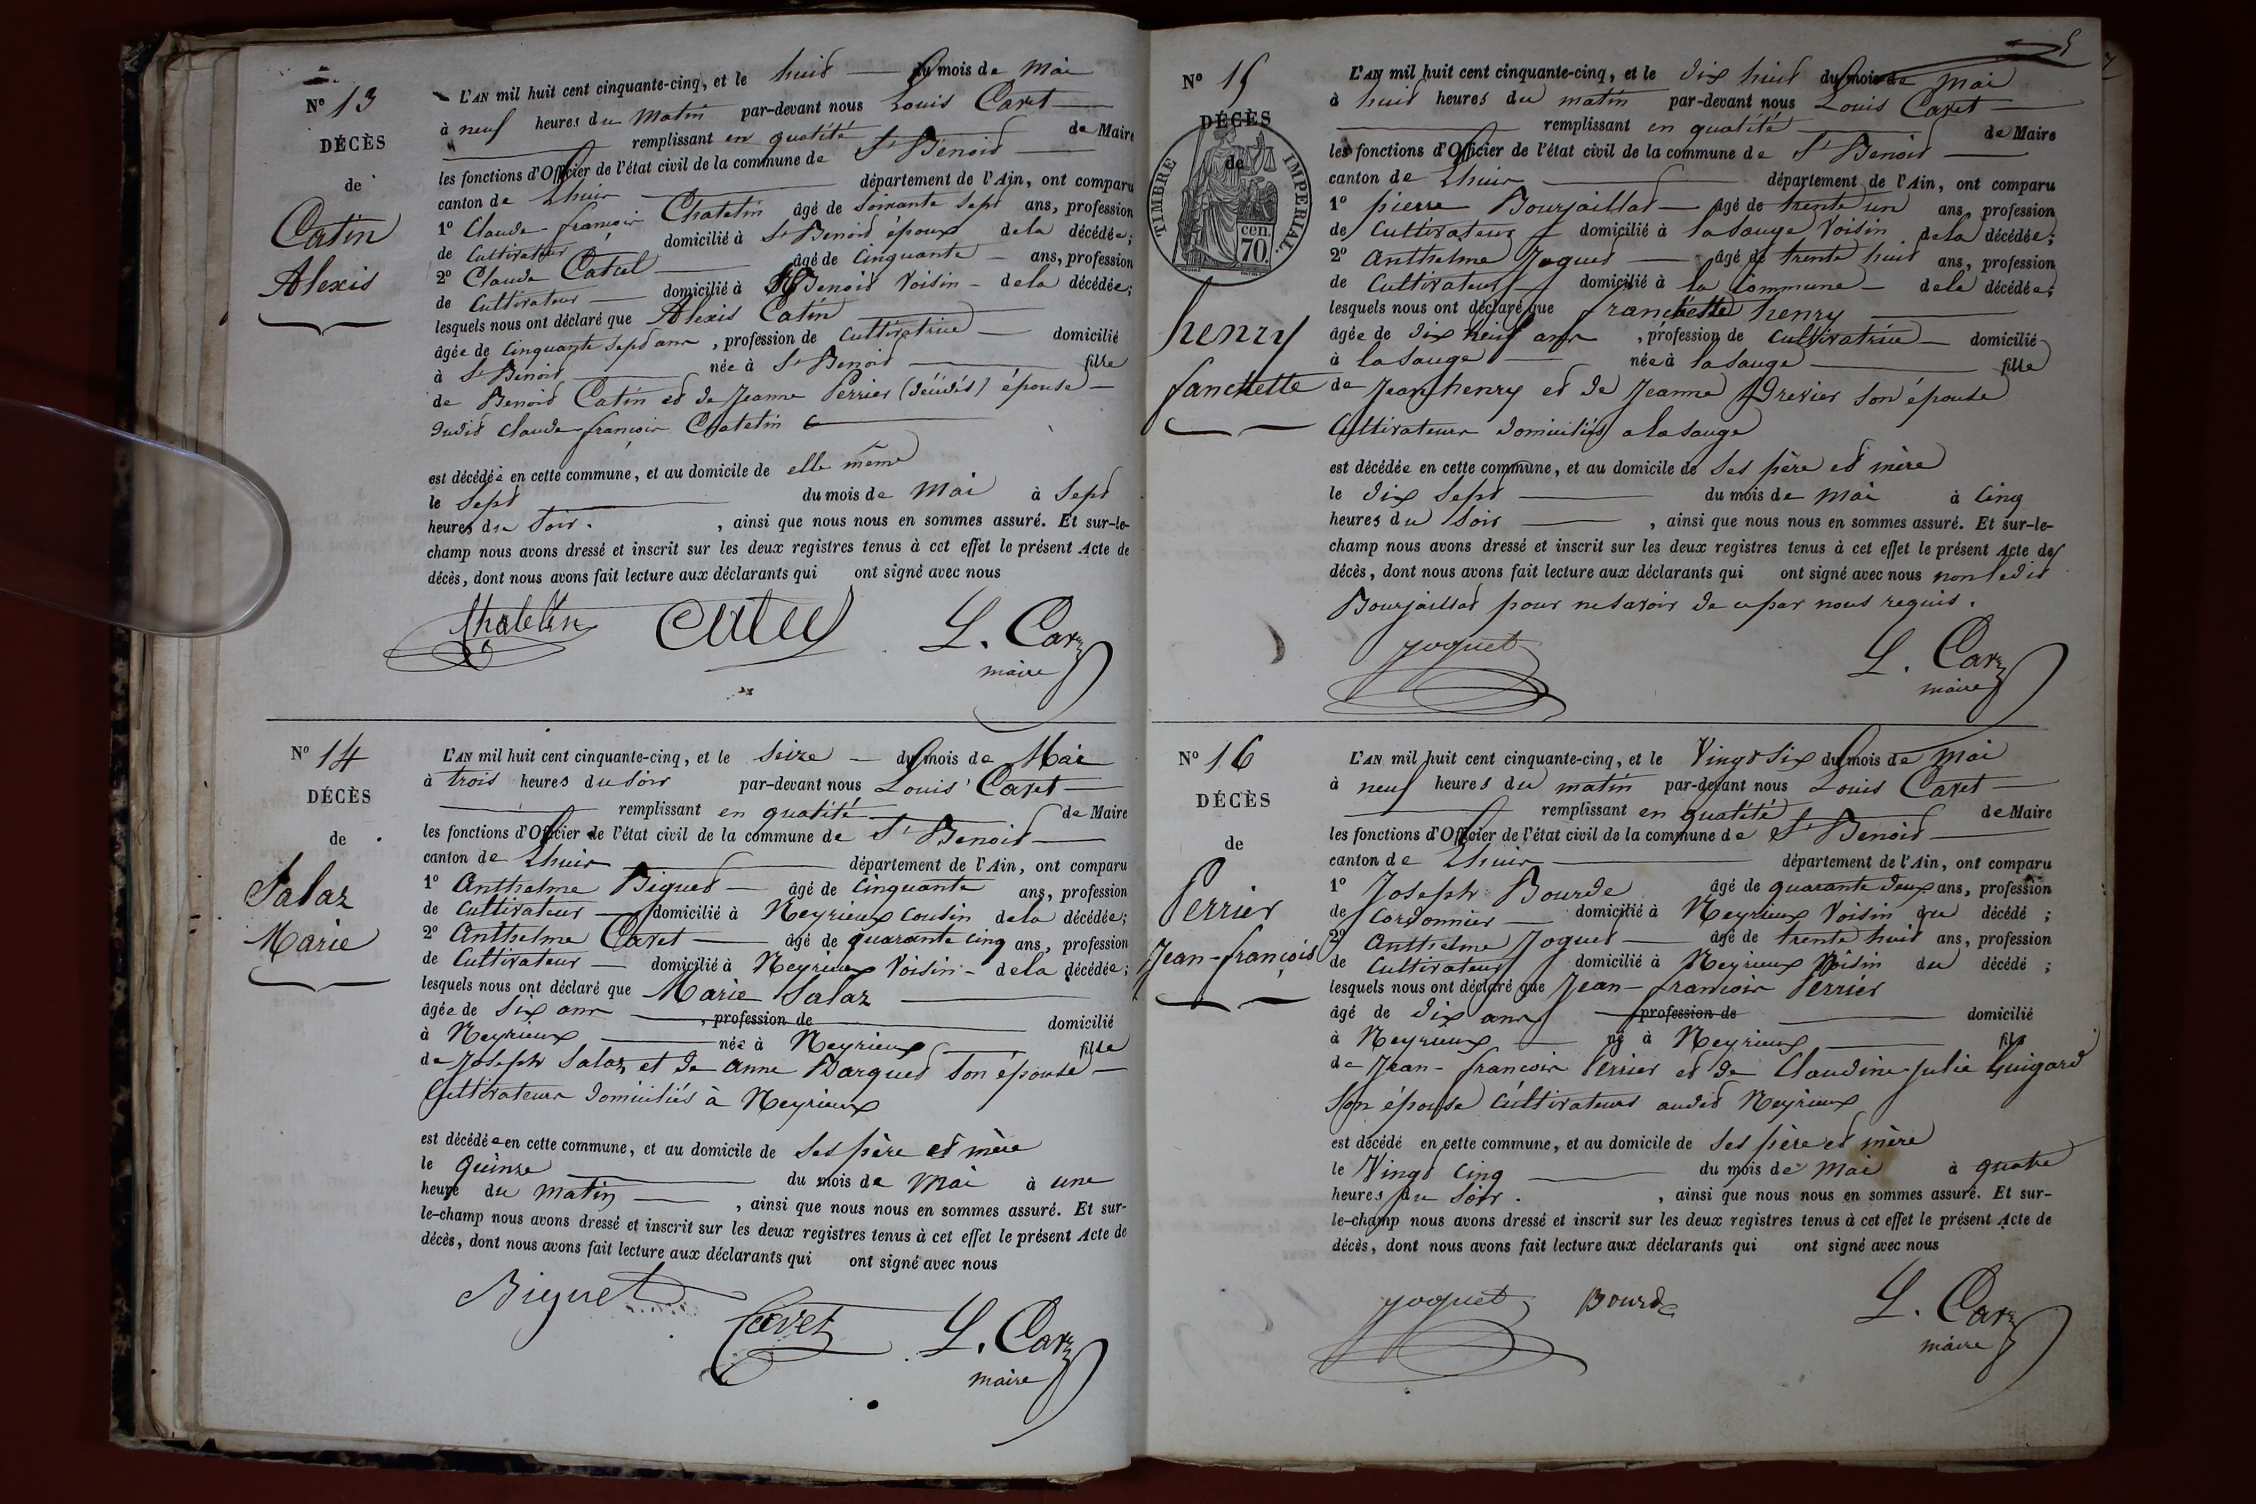 N° 13
DÉCÈS
de
Catin
Alexis
L'AN mil huit cent cinquante-cinq, et le huit du mois de Mai
à neuf heures du matin par-devant nous Louis Cavet
remplissant en qualité de Maire
les fonctions d'Officier de l'état civil de la commune de St Benoid
canton de Lhuis département de l'Ain, ont comparu
1° Claude-françois Chatelin âgé de soixante sept ans, profession
de Cultivateur domicilié à St Benoid époux de la décédée;
2° Claude Catiel âgé de Cinquante ans, profession
de Cultivateur domicilié à St Benoid Voisin de la décédée;
lesquels nous ont déclaré que Alexis Catin
âgée de Cinquante sept ans, profession de Cultivatrice domicilié
à St Benoid née à St Benoid fille
de Benoid Catin et de Jeanne Perrier (décédés) épouse
dudit Claude-françois Chatelin
est décédée en cette commune, et au domicile de elle même
le sept du mois de Mai à sept
heures du soir. , ainsi que nous nous en sommes assuré. Et sur-le-
champ nous avons dressé et inscrit sur les deux registres tenus à cet effet le présent Acte de
décès, dont nous avons fait lecture aux déclarants qui ont signé avec nous
Chatelin L. Cavet
maire
N° 14
DÉCÈS
de
Salaz
Marie
L'AN mil huit cent cinquante-cinq, et le seize du mois de Mai
à trois heures du soir par-devant nous Louis Cavet
remplissant en qualité de Maire
les fonctions d'Officier de l'état civil de la commune de St Benoid
canton de Lhuis département de l'Ain, ont comparu
1° Anthelme Biguet âgé de Cinquante ans, profession
de Cultivateur domicilié à Neyrieux Cousin de la décédée;
2° Anthelme Cavet âgé de quarante cinq ans, profession
de Cultivateur domicilié à Neyrieux Voisin de la décédée;
lesquels nous ont déclaré que Marie Salaz
âgée de six ans , profession de domicilié
à Neyrieux née à Neyrieux fille
de Joseph Salaz et de anne Barquet son épouse
Cultivateurs domiciliés à Neyrieux
est décédée en cette commune, et au domicile de ses père et mère
le quinze du mois de Mai à une
heure du matin , ainsi que nous nous en sommes assuré. Et sur-
le-champ nous avons dressé et inscrit sur les deux registres tenus à cet effet le présent Acte de
décès, dont nous avons fait lecture aux déclarants qui ont signé avec nous
Biguet
Cavet L. Cavet
maire
5
N° 15
DÉCÈS
de
TIMBRE IMPERIAL
cen.
70.
henry
fanchette
L'AN mil huit cent cinquante-cinq, et le dix huit du mois de Mai
à huit heures du matin par-devant nous Louis Cavet
remplissant en qualité de Maire
les fonctions d'Officier de l'état civil de la commune de St Benoid
canton de Lhuis département de l'Ain, ont comparu
1° pierre Bourjaillat âgé de trente un ans, profession
de Cultivateur domicilié à la sauge Voisin de la décédée;
2° Anthelme Joguet âgé de trente huit ans, profession
de Cultivateur domicilié à la Commune de la décédée;
lesquels nous ont déclaré que franchette henry
âgée de dix neuf ans , profession de Cultivatrice domicilié
à la sauge née à la sauge fille
de Jean henry et de Jeanne Drevier son épouse
Cultivateurs domiciliés a la sauge
est décédée en cette commune, et au domicile de ses père et mère
le dix sept du mois de Mai à Cinq
heures du soir , ainsi que nous nous en sommes assuré. Et sur-le-
champ nous avons dressé et inscrit sur les deux registres tenus à cet effet le présent Acte de
décès, dont nous avons fait lecture aux déclarants qui ont signé avec nous non ledit
Bourjaillat pour ne savoir de ce par nous requis.
Joguet L. Cavet
maire
N° 16
DÉCÈS
de
Perrier
Jean-françois
L'AN mil huit cent cinquante-cinq, et le Vingt six du mois de Mai
à neuf heures du matin par-devant nous Louis Cavet
remplissant en qualité de Maire
les fonctions d'Officier de l'état civil de la commune de St Benoid
canton de Lhuis département de l'Ain, ont comparu
1° Joseph Bourde âgé de quarante deux ans, profession
de Cordonnier domicilié à Neyrieux Voisin du décédé ;
2° Anthelme Joguet âgé de trente huit ans, profession
de Cultivateur domicilié à Neyrieux Voisin du décédé ;
lesquels nous ont déclaré que Jean-françois Perrier
âgé de dix ans profession de domicilié
à Neyrieux né à Neyrieux fils
de Jean-françois Perrier et de Claudine-Julie Guigard
son épouse Cultivateurs audit Neyrieux
est décédé en cette commune, et au domicile de ses père et mère
le Vingt cinq du mois de Mai à quatre
heures du soir. , ainsi que nous nous en sommes assuré. Et sur-
le-champ nous avons dressé et inscrit sur les deux registres tenus à cet effet le présent Acte de
décès, dont nous avons fait lecture aux déclarants qui ont signé avec nous
Joguet Bourde L. Cavet
maire